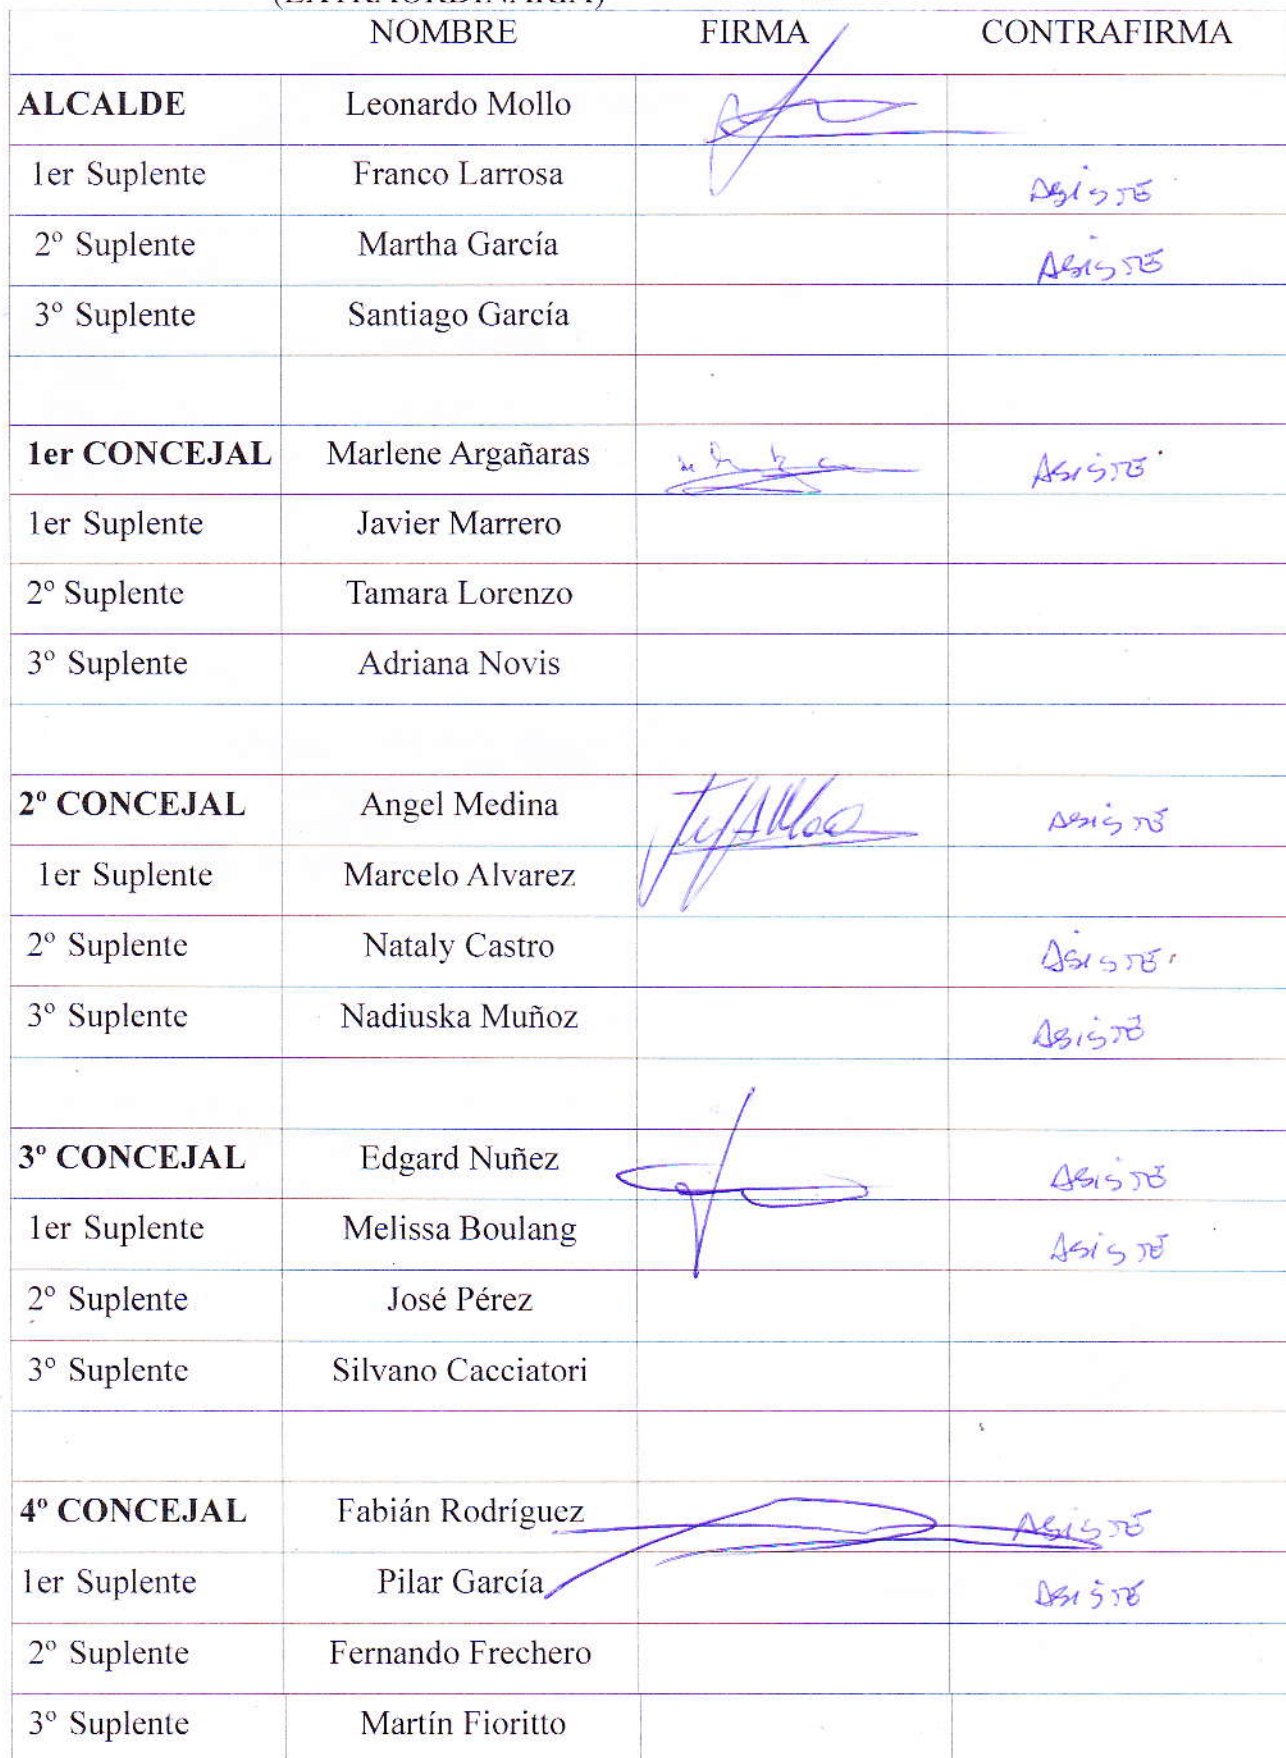 (EXTRAORDINARIA)
NOMBRE FIRMA CONTRAFIRMA
ALCALDE Leonardo Mollo
1er Suplente Franco Larrosa ASISTE
2º Suplente Martha García ASISTE
3º Suplente Santiago García
1er CONCEJAL Marlene Argañaras ASISTE
1er Suplente Javier Marrero
2º Suplente Tamara Lorenzo
3º Suplente Adriana Novis
2º CONCEJAL Angel Medina ASISTE
1er Suplente Marcelo Alvarez
2º Suplente Nataly Castro ASISTE
3º Suplente Nadiuska Muñoz ASISTE
3º CONCEJAL Edgard Nuñez ASISTE
1er Suplente Melissa Boulang ASISTE
2º Suplente José Pérez
3º Suplente Silvano Cacciatori
4º CONCEJAL Fabián Rodríguez ASISTE
1er Suplente Pilar García ASISTE
2º Suplente Fernando Frechero
3º Suplente Martín Fioritto